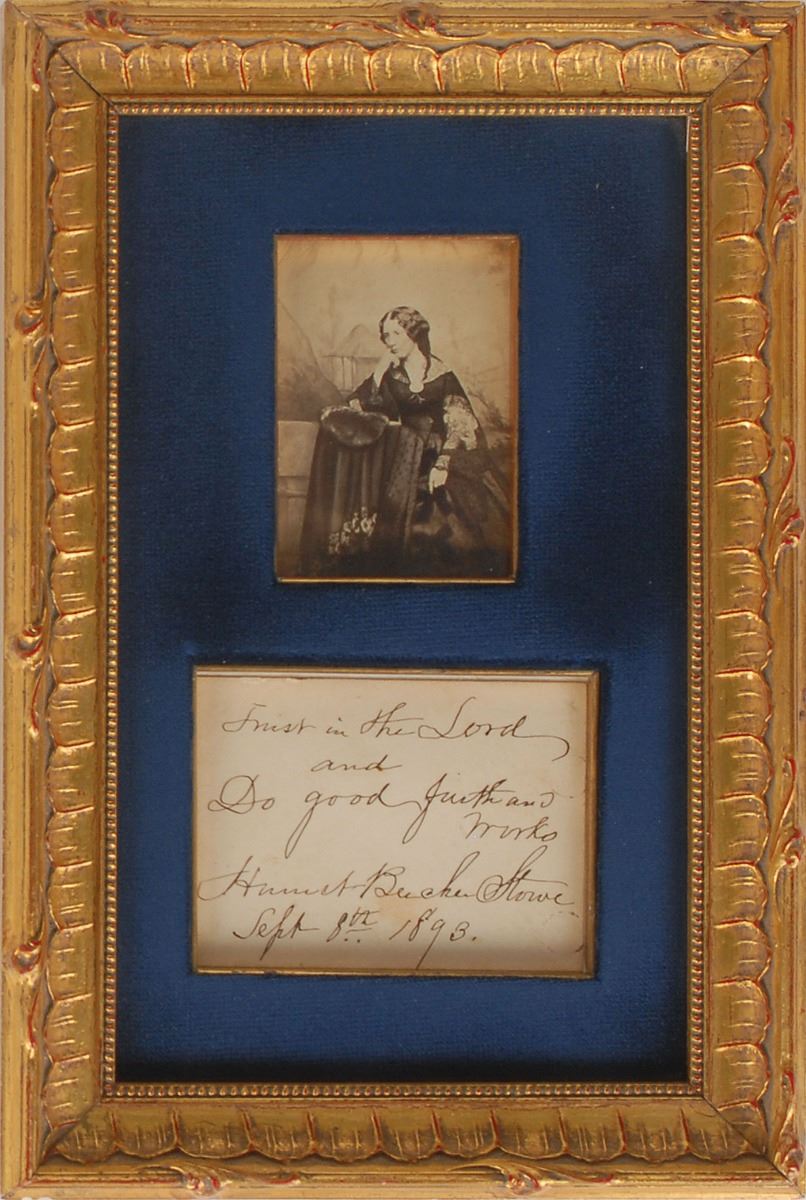 Trust in the Lord
and
Do good faith and
works
Harriet Beecher Stowe
Sept 8th 1893.